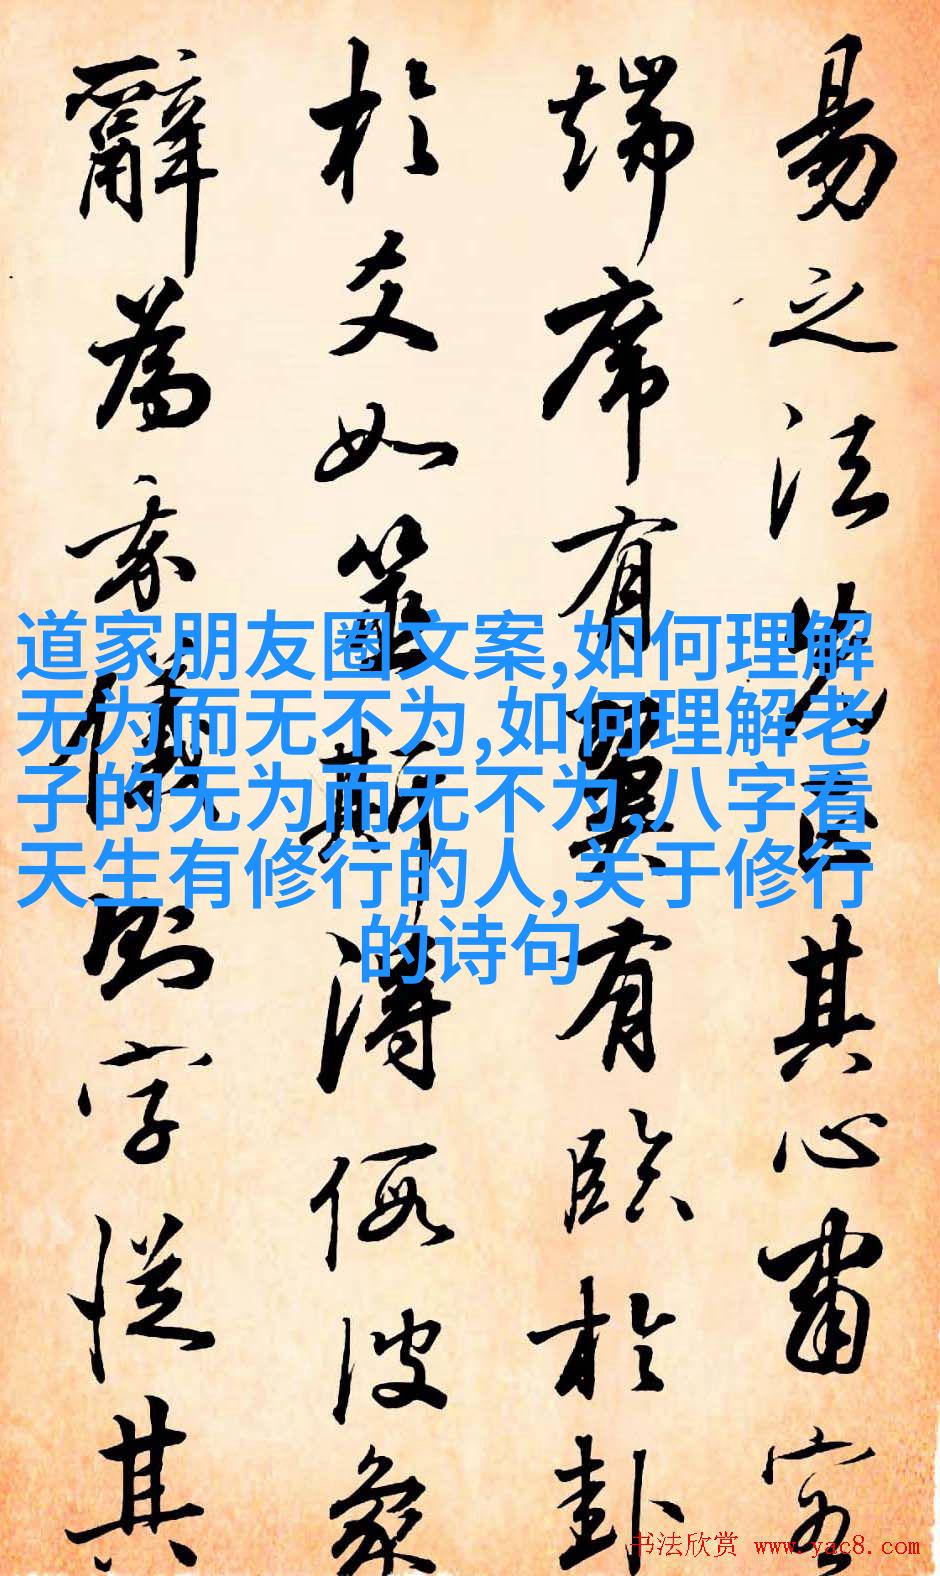 易之法先正其心肅容
端席有翼有臨於卦
於爻如筮斯得假彼象
辭為我儀則字從其
道家朋友圈文案,如何理解
无为而无不为,如何理解老
子的无为而无不为,八字看
天生有修行的人,关于修行
的诗句
书法欣赏 www.yac8.com